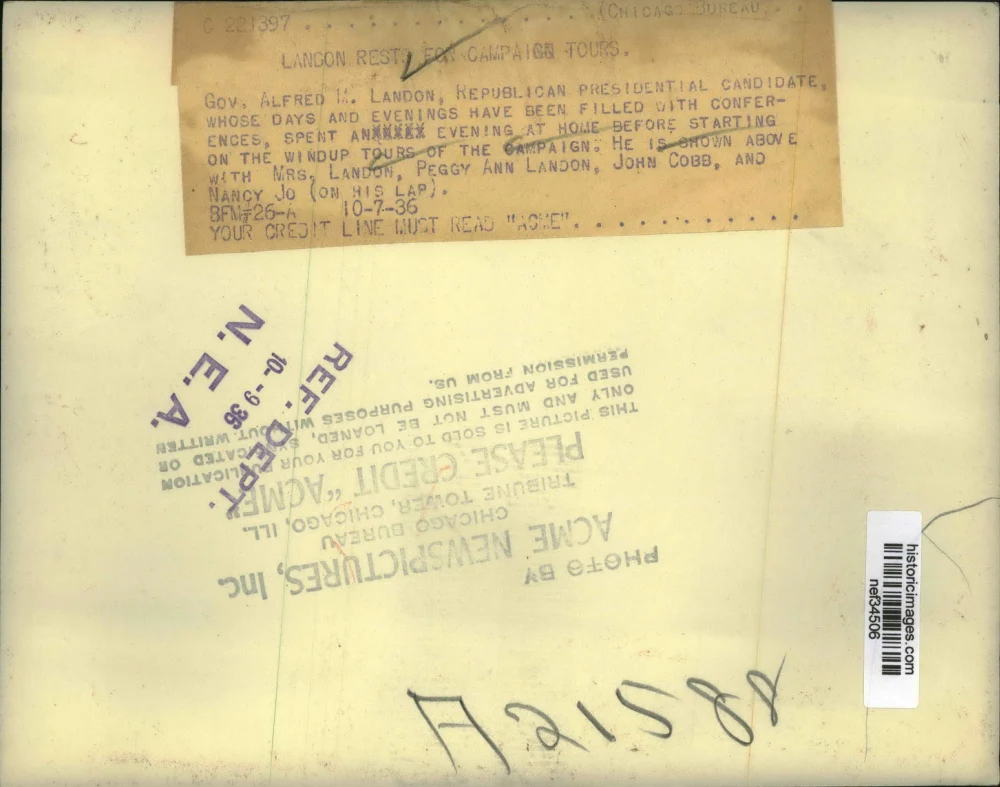 C 221397 . . . . . . . . . . . . . (CHICAGO BUREAU)
LANDON RESTS FOR CAMPAIGN TOURS.
GOV. ALFRED M. LANDON, REPUBLICAN PRESIDENTIAL CANDIDATE,
WHOSE DAYS AND EVENINGS HAVE BEEN FILLED WITH CONFER-
ENCES, SPENT ANXXXXX EVENING AT HOME BEFORE STARTING
ON THE WINDUP TOURS OF THE CAMPAIGN. HE IS SHOWN ABOVE
WITH MRS. LANDON, PEGGY ANN LANDON, JOHN COBB, AND
NANCY JO (ON HIS LAP).
BFM#26-A 10-7-36
YOUR CREDIT LINE MUST READ "ACME". . . . . . . . . . . .
N. E. A.
10--9 36
REF. DEPT.
PHOTO BY
ACME NEWSPICTURES, Inc.
CHICAGO BUREAU
TRIBUNE TOWER, CHICAGO, ILL.
PLEASE CREDIT "ACME"
THIS PICTURE IS SOLD TO YOU FOR YOUR PUBLICATION
ONLY AND MUST NOT BE LOANED, SYNDICATED OR
USED FOR ADVERTISING PURPOSES WITHOUT WRITTEN
PERMISSION FROM US.
historicimages.com
nef34506
A21588